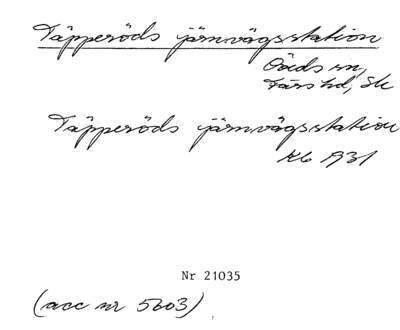 Täpperöds järnvägsstation
Öveds sn,
Färs hd, Sk
Täpperöds järnvägsstation
Kb 1931
Nr 21035
(acc nr 5603)